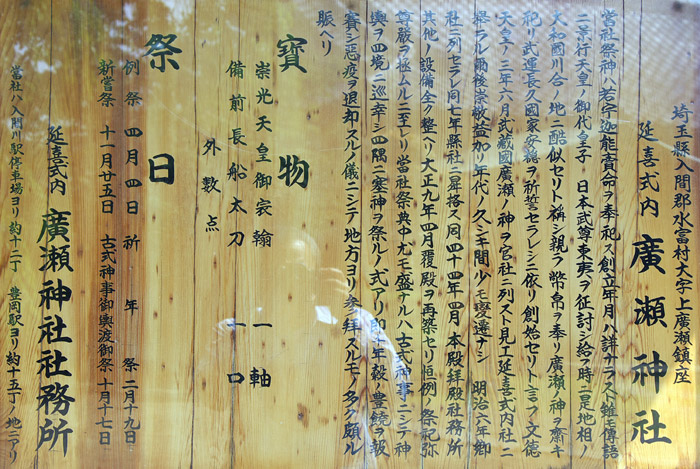 埼玉縣入間郡水富村大字上廣瀬鎮座
延喜式内 廣瀬神社
當社祭神ハ若宇迦能賣命ヲ奉祀ス創立年月ハ詳ナラスト雖モ傳語
ニ景行天皇ノ御代皇子 日本武尊東夷ヲ征討シ給フ時ニ是地相ノ
大和國川合ノ地ニ酷似セリト稱シ親ラ幣帛ヲ奉リ廣瀬ノ神ヲ齋キ
祀リ武運長久國家安穏ヲ祈誓セラレシニ依リ創始セリト言フ文德
天皇ノ三年六月武蔵國廣瀬ノ神ヲ官社ニ列スト見エ延喜式内社ニ
擧ラル爾後崇敬益加リ年代ノ久シキ間少モ変遷ナシ 明治六年郷
社ニ列セラレ同七年縣社ニ昇格ス同四十四年四月本殿拜殿社務所
其他ノ設備全ク整ヘリ大正九年四月覆殿ヲ再築セリ恒例ノ祭祀弥
尊嚴ヲ極ムルニ至レリ當社祭典中尤モ盛ナルハ古式神事ニシテ神
輿ヲ四境ニ巡幸シ四隅ニ塞神ヲ祭ルノ式アリ即チ年穀ノ豊饒ヲ報
賽シ惡疫ヲ退却スルノ儀ニシテ地方ヨリ参拜スルモノ多ク頗ル
賑ヘリ
寶物
崇光天皇御宸翰 一軸
備前長船太刀 一口
外數点
祭日
例祭 四月四日 祈年祭 二月十九日
新嘗祭 十一月廿五日 古式神事御輿渡御祭 十月十七日
延喜式内 廣瀬神社社務所
當社ハ入間川駅停車場ヨリ約十二丁 豊岡駅ヨリ約十五丁ノ地ニアリ